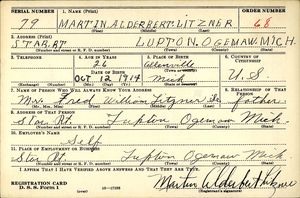 SERIAL NUMBER 1. NAME (Print) ORDER NUMBER
79 MARTIN ALDERBERT LITZNER 68
2. ADDRESS (Print)
STAR RT LUPTON, OGEMAW, MICH.
3. TELEPHONE 4. AGE IN YEARS 5. PLACE OF BIRTH 6. COUNTRY OF CITIZENSHIP
26
DATE OF BIRTH
OCT 12 1914 Mich U.S.
7. NAME OF PERSON WHO WILL ALWAYS KNOW YOUR ADDRESS 8. RELATIONSHIP OF THAT PERSON
Fred William Litzner Sr. father
9. ADDRESS OF THAT PERSON
Star Rt. Lupton Ogemaw Mich.
10. EMPLOYER'S NAME
Self
11. PLACE OF EMPLOYMENT OR BUSINESS
Star Rt. Lupton Ogemaw Mich.
I AFFIRM THAT I HAVE VERIFIED ABOVE ANSWERS AND THAT THEY ARE TRUE.
REGISTRATION CARD
D. S. S. FORM 1
Martin Alderbert Litzner